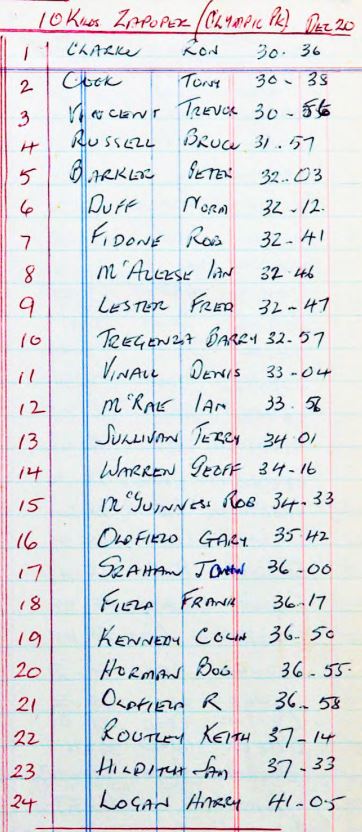 10 Kilos Zatopek (Olympic Pk) Dec 20
1 Clarke Ron 30. 36
2 Cook Tony 30 - 38
3 Vincent Trevor 30 - 56
4 Russell Bruce 31. 57
5 Barkler Peter 32.. 03
6 Duff Norm 32 - 12.
7 Fidone Rob 32 - 41
8 McAleese Ian 32 46
9 Lester Fred 32 - 47
10 Tregenza Barry 32 - 57
11 Vinall Denis 33 - 04
12 McRae Ian 33. 58
13 Sullivan Terry 34 01
14 Warren Geoff 34 - 16
15 McGuinness Rob 34. 33
16 Oldfield Gary 35 42
17 Graham John 36 - 00
18 Field Frank 36 - 17
19 Kennedy Colin 36 - 50
20 Horman Bob 36 - 55.
21 Oldfield R 36 - 58
22 Routley Keith 37 - 14
23 Hilditch 37 - 33
24 Logan Harry 41 - 05